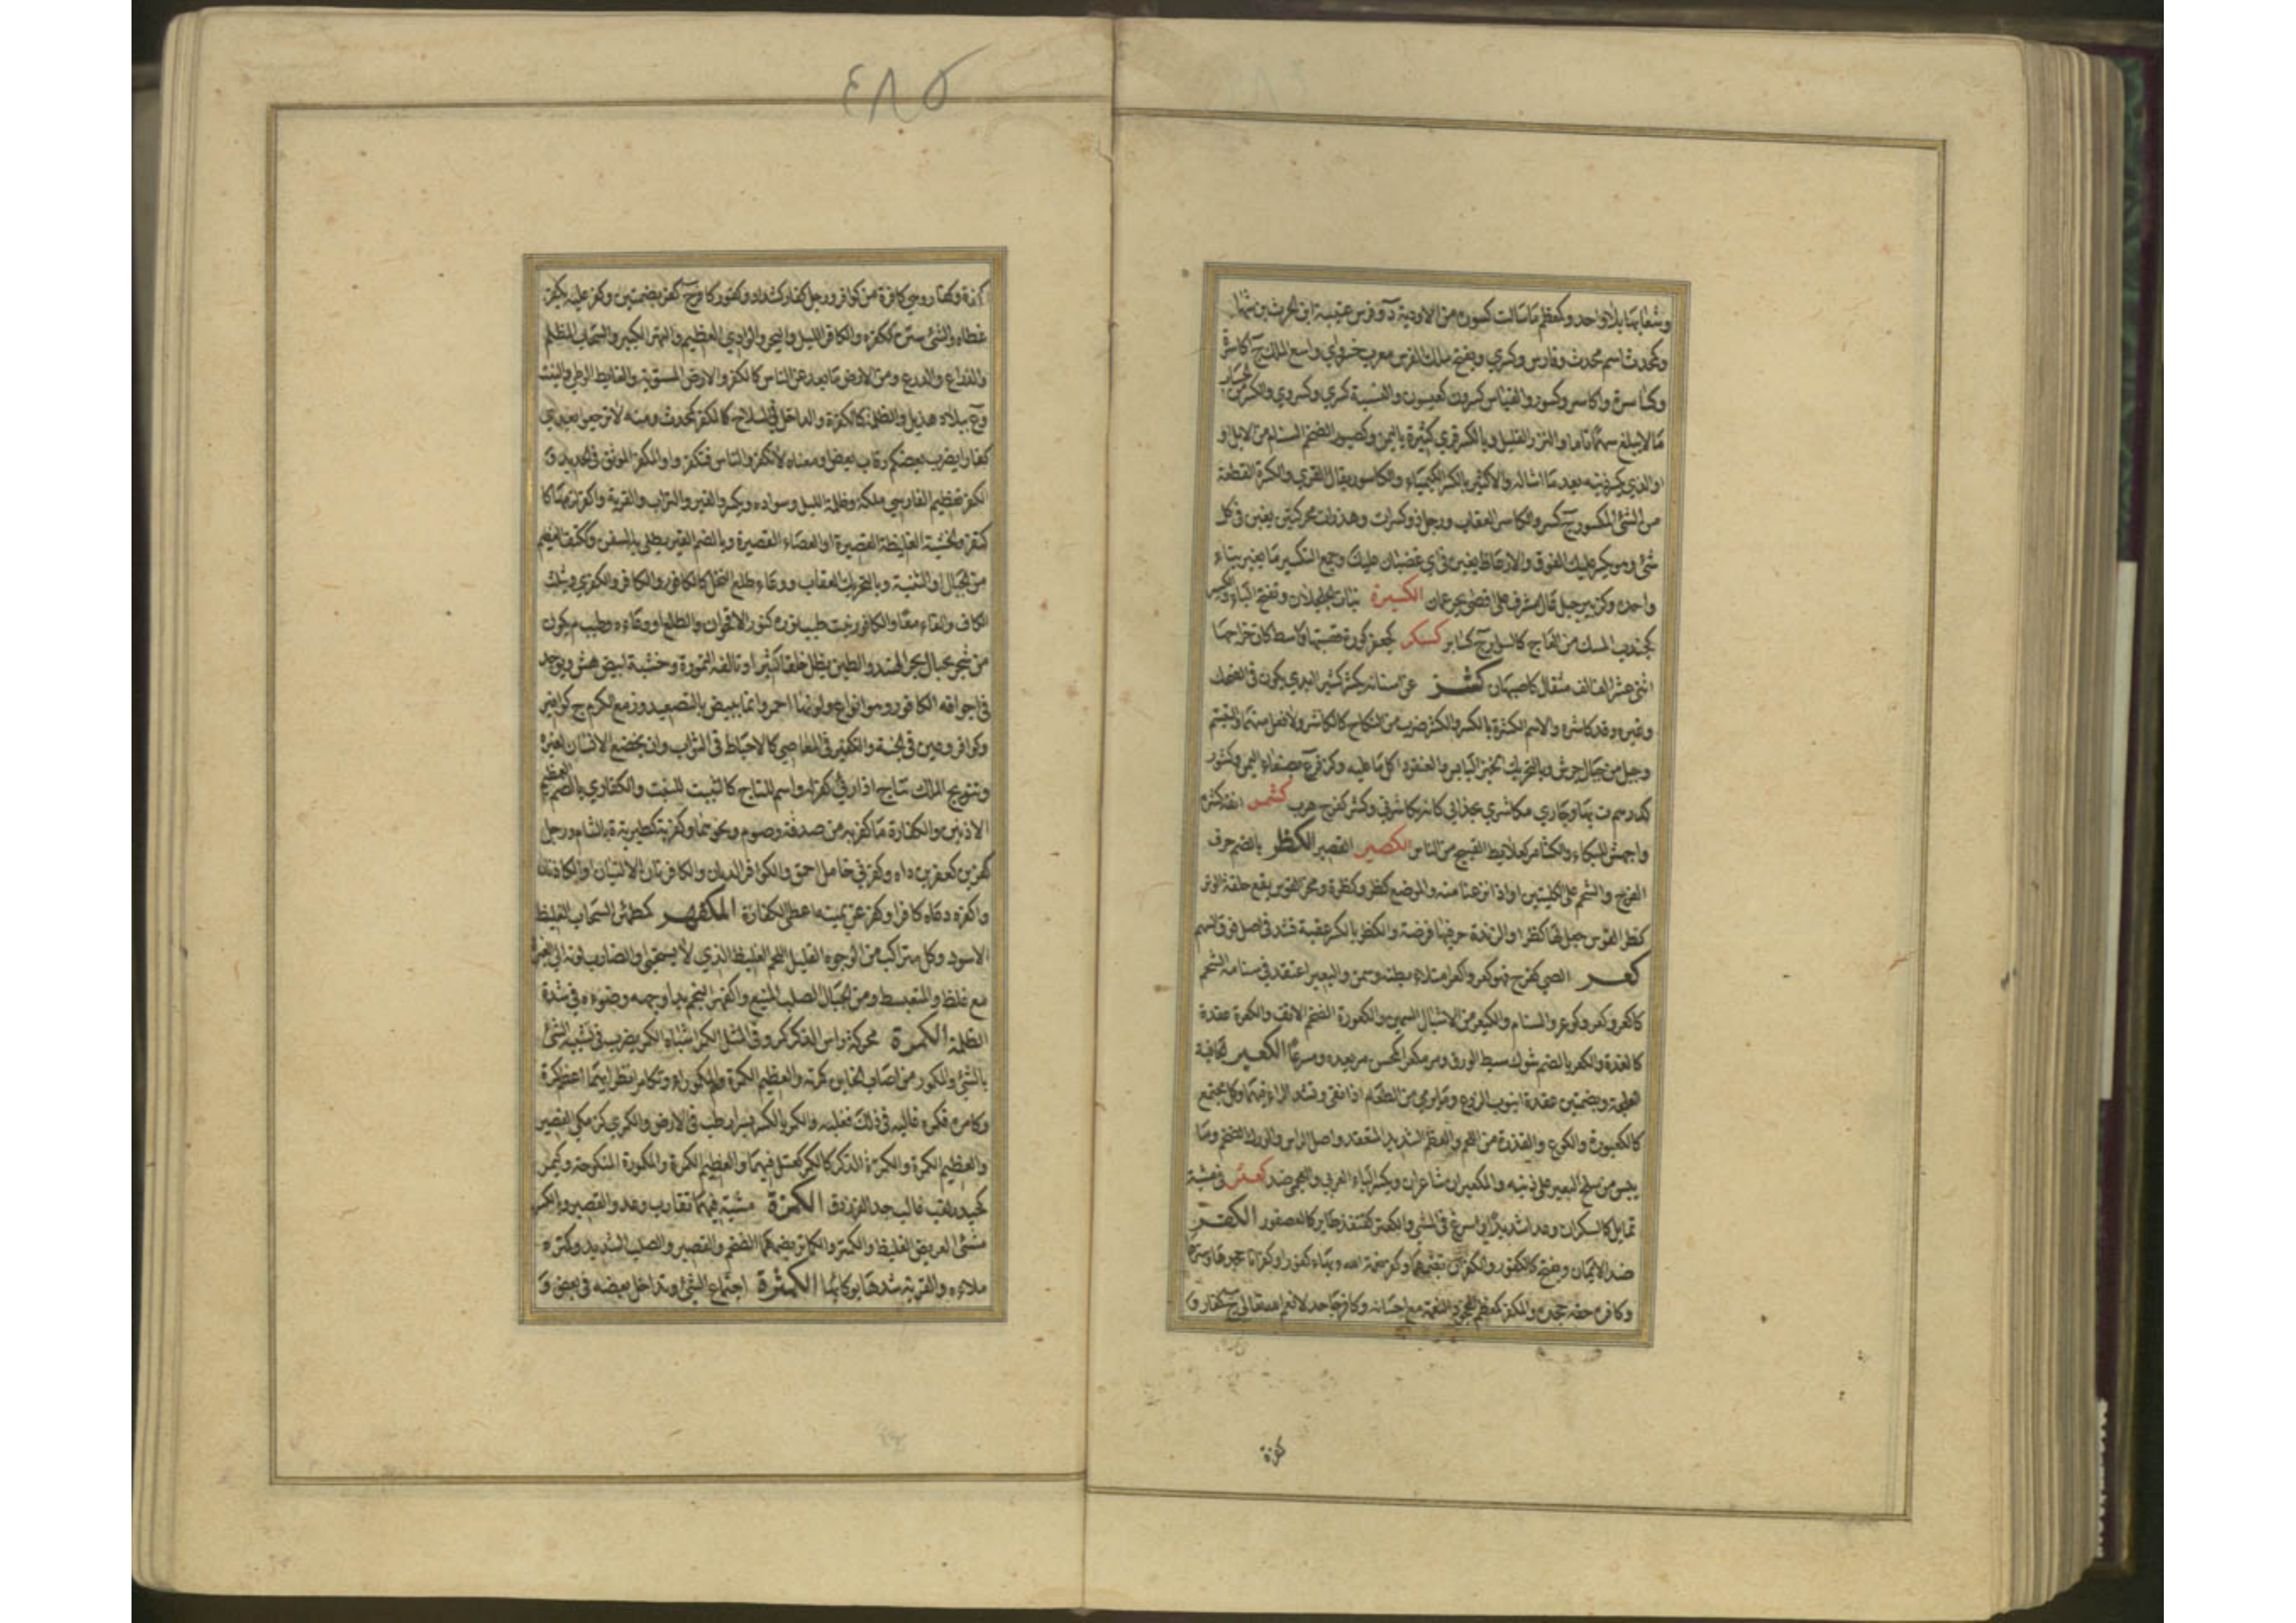 ٤٨٥
وشعابها بلا واحد وكمعظم ما سالت كسوره من الاودية د وفرس عتيبة ابن الحرث بن شهاب
وكمحدث اسم محدث وفارس وكسرى ويفتح ملك الفرس معرب خسرو اي واسع الملك ج اكاسرة
وكساسرة واكاسر وكسور والقياس كسرون كعيسون والنسبة كسري وكسروي والكسر من الحساب
ما لا يبلغ سهما تاما والنزر القليل وبالكسر قرى كثيرة باليمن وكصبور الضخم السنام من الابل او
او الذي يكسر ذنبه بعد ما اشاله والاكسير بالكسر الكيمياء والكاسور بقال القرى والكسرة القطعة
من الشئ المكسور ج كسر والكاسر العقاب ورجل ذو كسرات وهذرات محركتين يغبن في كل
شئ وهو يكسر عليك الفوق والارعاظ يغبن في اي غضبان عليك وجمع التكسير ما يغير بناء
واحده وكزبير جبل عال مشرف على اقصى بحر عمان الكسبرة نبات الجلجلان وتفتح الباء والكسبر
كجندب المسك من العاج كالسوار ج كسابر كسكر كجعفر كورة قصبتها واسط كان خراجها
اثنى عشر الف الف مثقال كاصبهان كشر عن اسنانه يكشر كشرا ابدى يكون في الضحك
وغيره وقد كاشره والاسم الكشرة بالكسر والكشر ضرب من النكاح كالكاشر ولا فعل منهما والتبسم
وجبل من جبال جرش وبالتحريك الخبز اليابس والعنقود اكل ما عليه وكزفر ع بصنعاء اليمن وكشور
كدرهم ت بها وجاري مكاشري بحذائي كانه يكاشرني وكشر كفرح هرب كشمر انفه كسره
واجهش للبكاء والكشامر كعلابط القبيح من الناس الكصير القصير الكظر بالضم حرف
الفرج والشحم على الكليتين او اذا نزعتا منه والموضع كظر وكظرة ومحز القوس يقع حلقة الوتر
كظر القوس جعل لها كظرا والزندة حز فيها فرضة والكظر بالكسر عقبة تشد في اصل فوق السهم
كعر الصبي كفرح فهو كعر واكعر امتلاء بطنه وسمن والبعير اعتقد في سنامه الشحم
كاكعر وكعر وكوعر السنام والكيعر من الاشبال السمين والكعورة الضخم الانف والكعرة عقدة
كالغدة والكعر بالضم شوك سبط الورق ومر مكعرا كمحسن مر يعدو مسرعا الكعبر الجافية
العلجة وبضمتين عقدة انبوب الزرع وما يرمى من الطعام اذا نقي وتشد الراء فيهما وكل مجتمع
كالكعبورة والكوع والفدرة من اللحم والعظم الشديد المتعقد واصل الراس والورك الضخم وما
يبس من سلح البعير على ذنبه والمكعبران شاعران وبكسر الباء العربي والعجمي ضد كعتر في مشيته
تمايل كالسكران وعدا شديدا او اسرع في المشي والكعتر كقنفذ طاير كالعصفور الكفر
ضد الايمان ويفتح كالكفور والكفران بضمهما وكفر نعمة الله وبها كفورا وكفرانا جحدها وسترها
وكافره حقه جحده والمكفر كمعظم المجحود النعمة مع احسانه وكافر جاحد لانعم الله تعالى ج كفار و
كفرة
كفرة وكفار وهي كافرة من كوافر ورجل كفار كشداد وكفور كافر ج كفر بضمتين وكفر عليه يكفر
غطاه والشئ ستره ككفره والكافر الليل والبحر والوادي العظيم والنهر الكبير والسحاب المظلم
والزراع والدرع ومن الارض ما بعد عن الناس كالكفر والارض المستوية والغايط الوطى والنبت
وع ببلاد هذيل والظلمة كالكفرة والداخل في السلاح كالمكفر كمحدث ومنه لا ترجعوا بعدي
كفارا يضرب بعضكم رقاب بعض ومعناه لا تكفروا الناس فتكفروا والمكفر الموثق في الحديد و
الكفر تعظيم الفارسي ملكه وظلمة الليل وسواده ويكسر والقبر والتراب والقرية واكفر لزمها كا
كتفر والخشبة الغليظة القصيرة او العصا القصيرة وبالضم القير يطلى به السفن وككتف العظيم
من الجبال او الثنية وبالتحريك العقاب ووعاء طلع النخل كالكافور والكافر والكفرى وتثلث
الكاف والفاء معا والكافور نبت طيب نوره كنور الاقحوان والطلع او وعاءه وطيب م يكون
من شجر بجبال بحر الهند والصين يظل خلقا كثيرا وتالفه النمورة وخشبه ابيض هش ويوجد
في اجوافه الكافور وهو انواع ولونها احمر وانما يبيض بالتصعيد وزمع الكرم ج كوافير
وكوافر وعين في الجنة والتكفير في المعاصي كالاحباط في الثواب وان يخضع الانسان لغيره
وتتويج الملك بتاج اذا رئي كفر له واسم للتاج كالتنبيت للنبت والكفاري بالضم العظيم
الاذنين والكفارة ما كفر به من صدقة وصوم ونحوهما وكفرية كطبرية ة بالشام ورجل
كفرين كعفرين داه وكفرنى خامل احمق والكوافر الدنان والكافرتان الاليتان او الكاذتان
واكفره دعاه كافرا وكفر عن يمينه اعطى الكفارة المكفهر كمطمئن السحاب الغليظ
الاسود وكل متراكب ومن الوجوه القليل اللحم الغليظ الذي لا يستحيي او الضارب لونه الى الغبرة
مع غلظ والمتعبس ومن الجبال الصلب المنيع واكفهر النجم بدا وجهه وضوءه في شدة
الظلمة الكمرة محركة راس الذكر ج كمر وفي المثل الكمر اشباه الكمر يضرب في تشبيه الشئ
بالشئ والمكمور من اصاب الخاتن كمرته والعظيم الكمرة وهم المكموراء وتكامرا نظرا ايهما اعظم كمرة
وكامره فكمره غالبه في ذلك فغلبه والكمر بالكسر بسر ارطب في الارض والكمرى كزمكى القصير
والعظيم الكمرة والكمرة الذكر كالكمر كعتل فيهما والعظيم الكمرة والمكمورة المنكوحة وكيمر
كحيدر لقب غالب جد الفرزدق الكمترة مشية فيها تقارب وعدو القصير والكمتر
مشى العريض الغليظ والكمتر والكماتر بضمهما الضخم والقصير والصلب الشديد وكمتره
ملاءه والقربة شدها بوكائها الكمثرة اجتماع الشئ وتداخل بعضه في بعض و